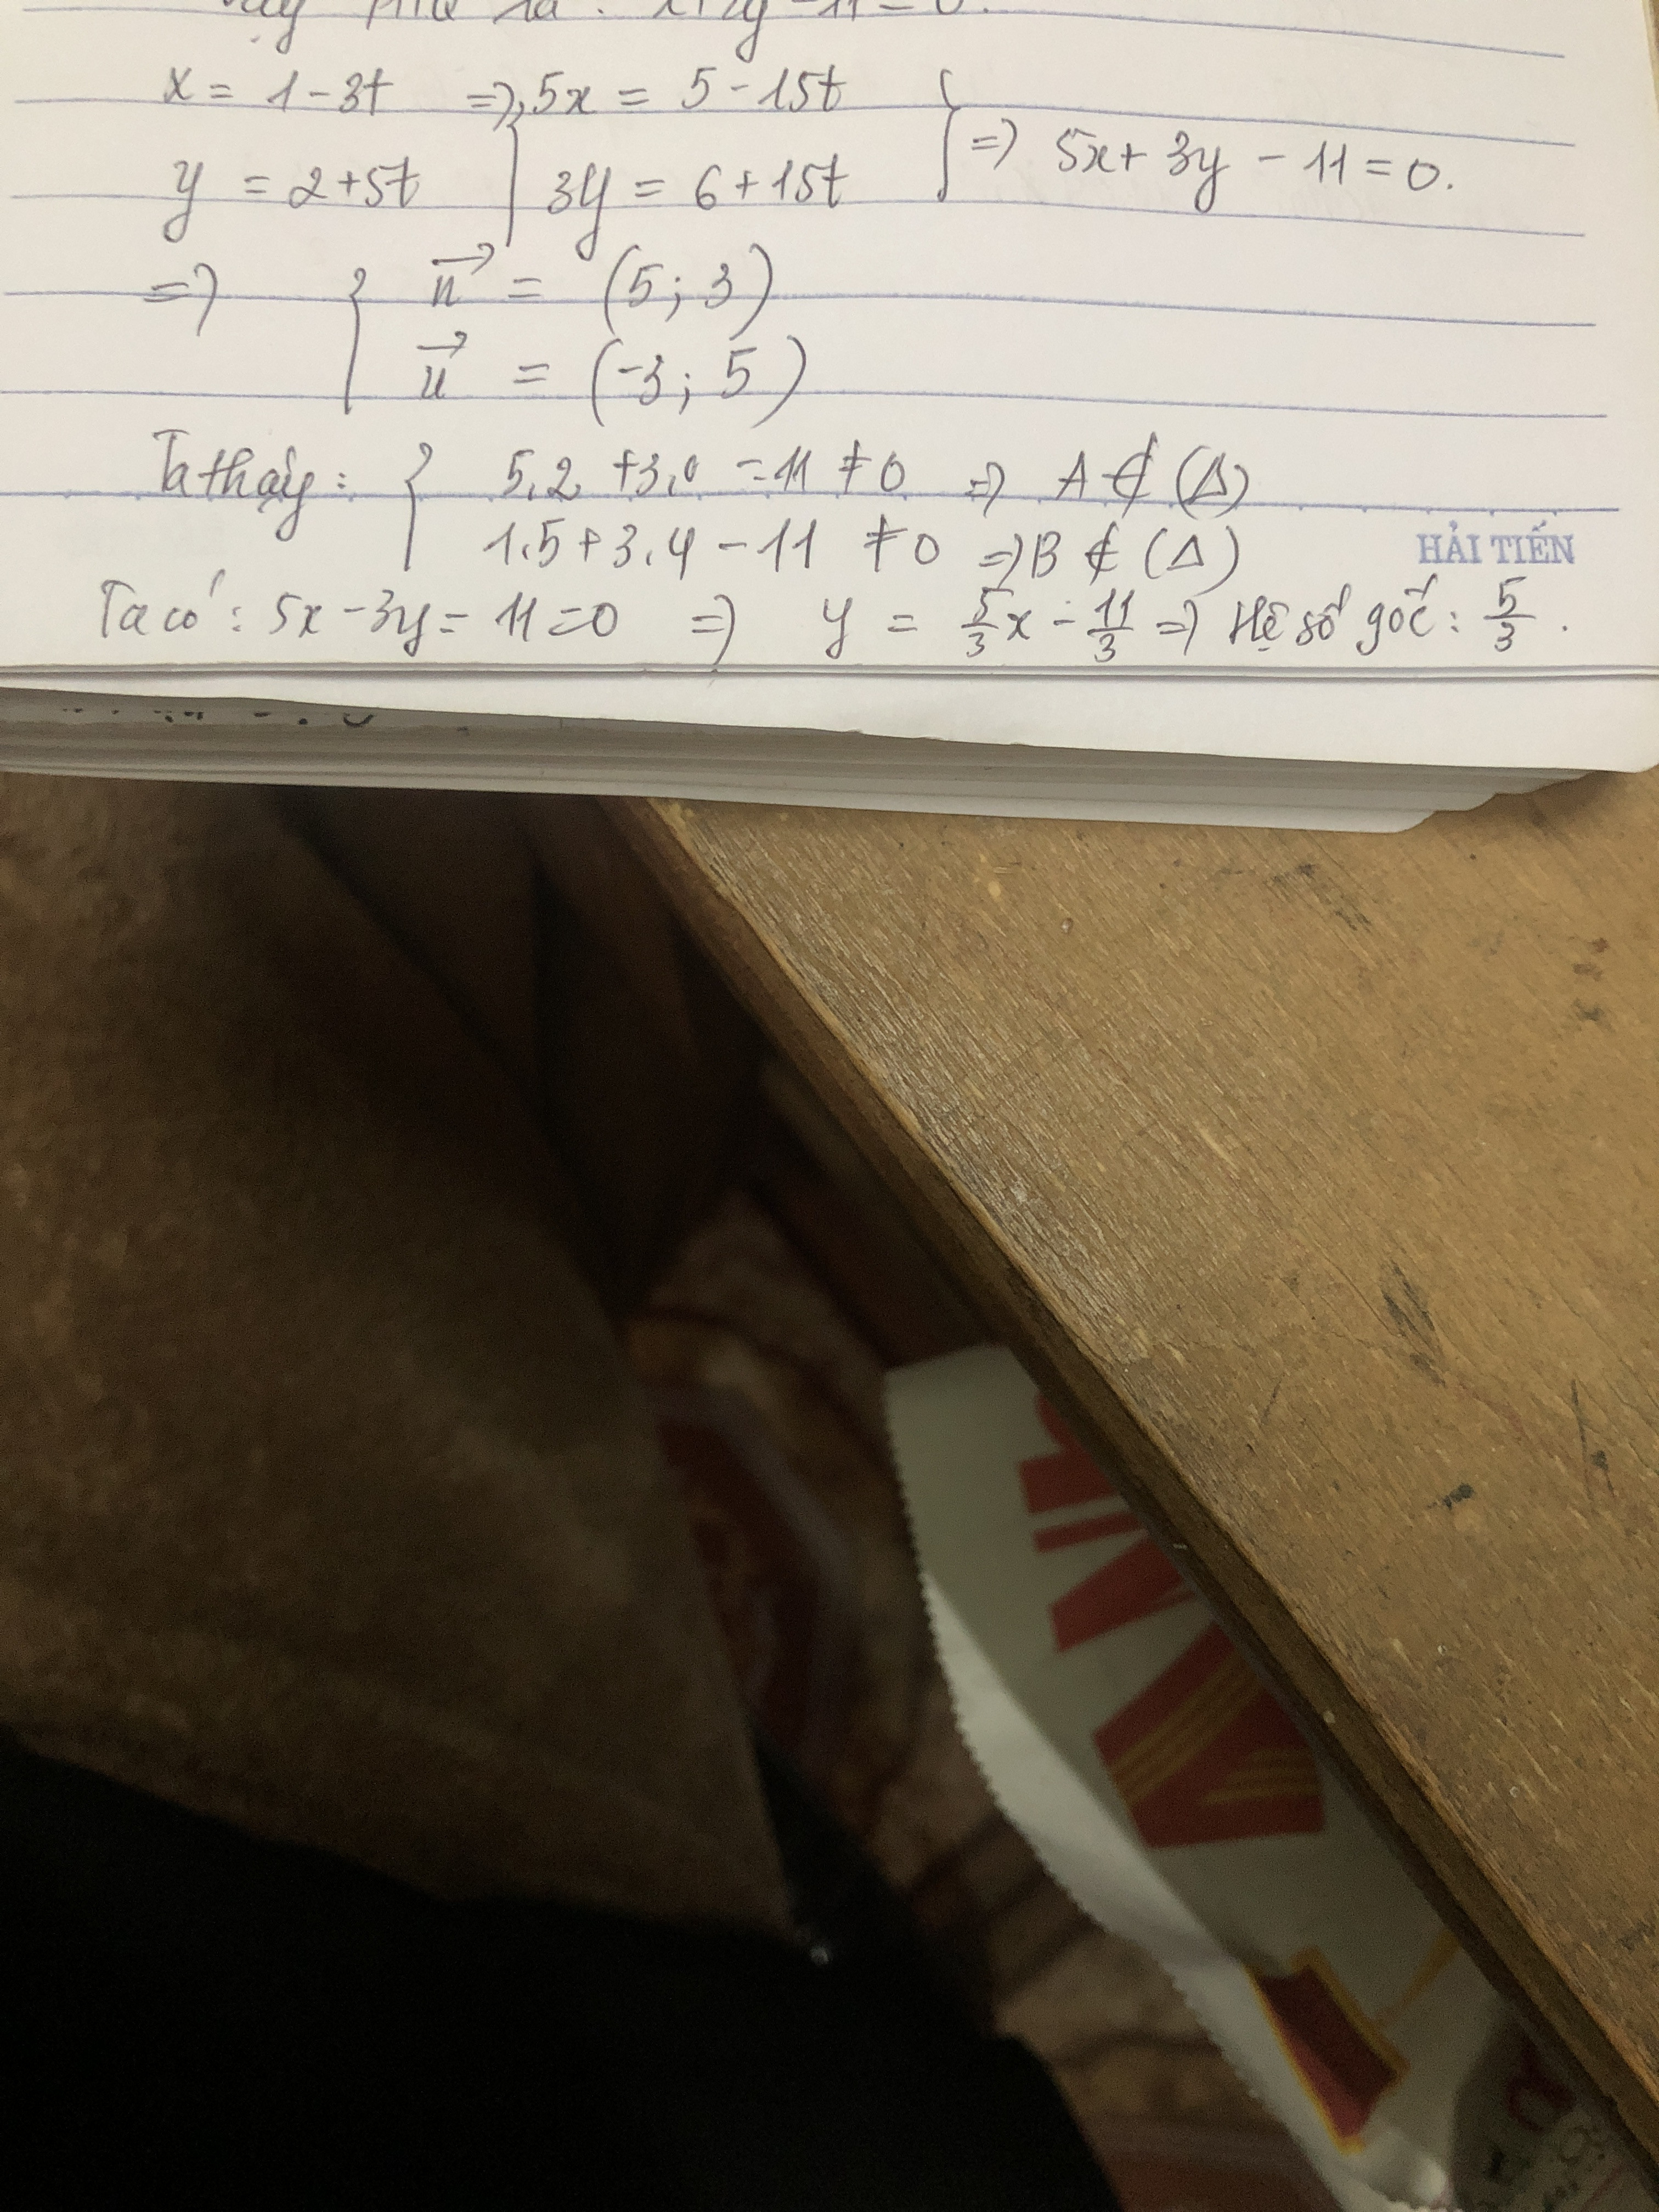 x = 1 - 3t => 5x = 5 - 15t
y = 2 + 5t 3y = 6 + 15t => 5x + 3y - 11 = 0.
=> { n⃗ = (5; 3)
u⃗ = (-3; 5)
Ta thấy: { 5.2 + 3.0 - 11 ≠ 0 => A ∉ (Δ)
1.5 + 3.4 - 11 ≠ 0 => B ∉ (Δ)
HẢI TIẾN
Ta có: 5x - 3y = 11 = 0 => y = 5/3 x - 11/3 => Hệ số góc: 5/3.